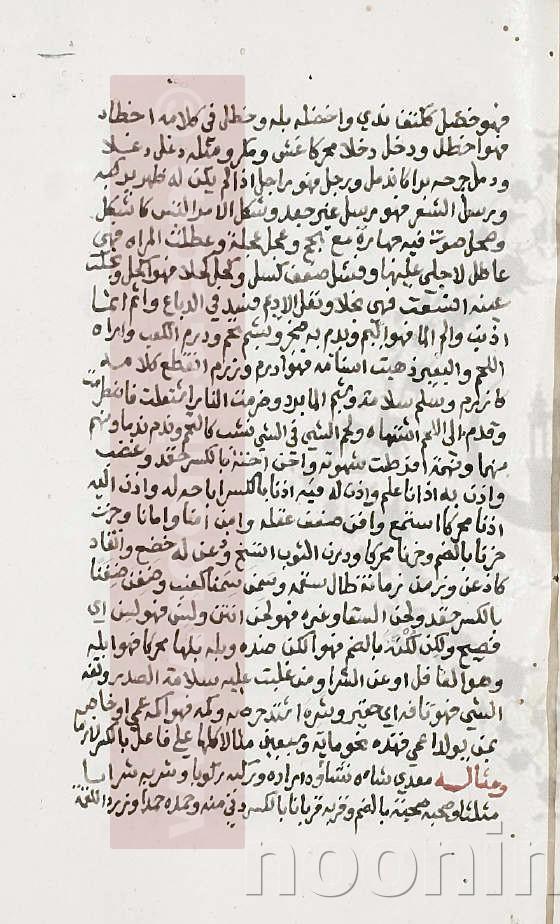 فهو خضل كلتف ندي واخضله بله وخطل في كلامه اخطاء
فهو اخطل ودخل دخلا محركا غش ومكر ومثله دغل دغلا
ودمل جرحه برا كاندمل ورجل فهو راجل اذا لم يكن له ظهر يركبه
ورسل الشعر فهو رسل غير جعد وشكل الامر التبس كاشكل
وصحل صوت فيه مع بحح وعجل عجلة وعطلت المراه فهي
عاطل لا حلي عليها وفشل ضعف كسل وكحل كحلا فهو اكحل
عينه اتسعت فهي نجلا ونغل الاديم فسد في الدباغ واثم اثما
اذنب والم الما فهو اليم وبرم به ضجر وبشم تخم ودرم الكعب واراه
اللحم والبعير ذهبت اسنانه فهو ادرم ورزم انقطع كلامه
كارزم وسلم سلامة وشبم الما برد وضرمت النار اشتعلت فاضطرمت
وقدم الى اللحم اشتهاه ولحم الشي في الشي نشب كالتحم وندم ندما ونهم
نهما ونهمة افرطت شهوته واحن احنة بالكسر حقد وغضب
واذن به اذانا علم واذن له فيه اذنا بالكسر اباحه له واذن اليه
اذنا محركا استمع وافن ضعف عقله وامن امنا وامانا وحزن
حزنا بالضم وحزنا محركا ودرن الثوب اتسخ وذعن له خضع وانقاد
كاذعن وزمن زمانة طال سقمه وسمن سمنا كعنب وضغن ضغنا
بالكسر حقد ولخن السقا وغيره فهو لخن انتن ولسن فهو لسن اي
فصيح ولكن لكنة بالضم فهو الكن ضده وبله بلها محركا فهو ابله
وهو الغافل او عن الشر او من غلبت عليه سلامة الصدر وتفه
الشي فهو تافه اي حقير وشره اشتد حرصه وكمه فهو اكمه عمي او خاص
بمن يولد اعمى فهذه نحو ماية وسبعين مثالا كلها على فاعل بالكسر لازما
ومثاله معدي شاه نشاؤه اراده وركبه ركوبا وشربه شربا
مثلثا وصحبه صحبة بالضم وقربه قربانا بالكسر دني منه وحمده حمدا وزرد اللقمة
noonin